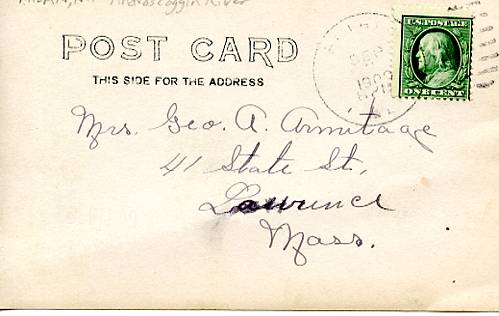 Androscoggin River
POST CARD
THIS SIDE FOR THE ADDRESS
SEP
1909
U.S. POSTAGE
ONE CENT
Mrs. Geo. A. Armitage
41 State St.,
Lawrence
Mass.